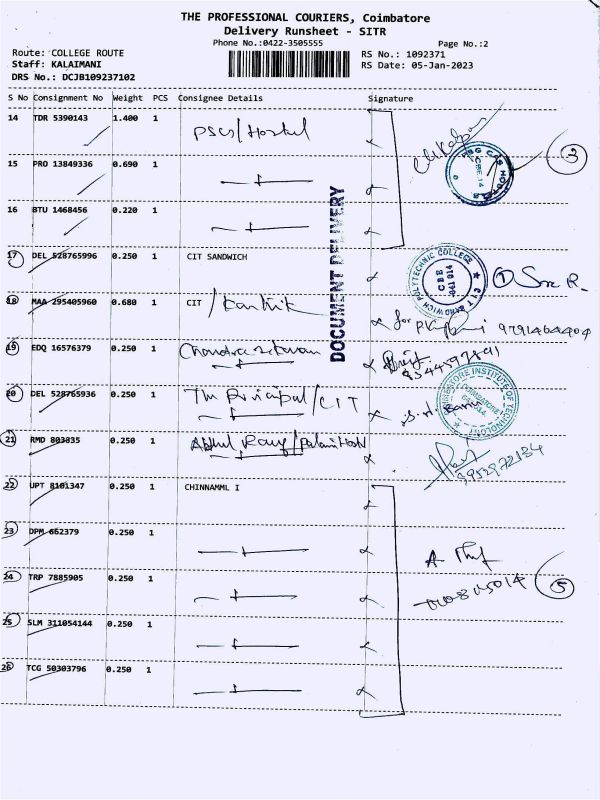 THE PROFESSIONAL COURIERS, Coimbatore
Delivery Runsheet - SITR
Phone No.:0422-3505555
Page No.:2
Route: COLLEGE ROUTE
RS No.: 1092371
Staff: KALAIMANI
RS Date: 05-Jan-2023
DRS No.: DCJB109237102
S No Consignment No Weight PCS Consignee Details Signature
14 TDR 5390143 1.400 1
3
15 PRO 13849336 0.690 1
16 BTU 1468456 0.220 1
DOCUMENT DELIVERY
17 DEL 528765996 0.250 1 CIT SANDWICH
CIT SANDWICH POLYTECHNIC COLLEGE
CBE
641 014
1
18 MAA 295405960 0.680 1 CIT / Karthik
for 9791464404
19 EDQ 16576379 0.250 1 Chandrasekaran
20 DEL 528765936 0.250 1 The Principal / CIT
COIMBATORE INSTITUTE OF TECHNOLOGY
21 RMD 803835 0.250 1 Abdul
22 UPT 8101347 0.250 1 CHINNAMML I
23 DPM 662379 0.250 1
24 TRP 7885905 0.250 1
5
25 SLM 311054144 0.250 1
26 TCG 50303796 0.250 1